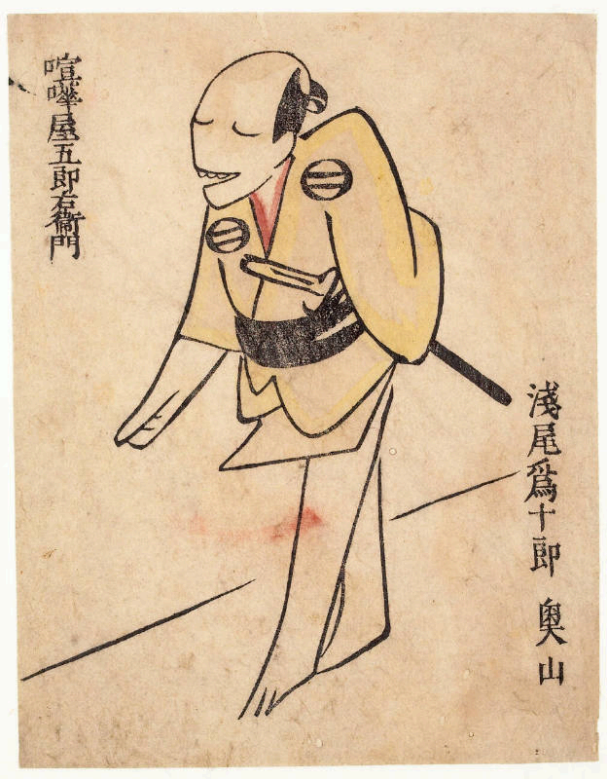 淺尾爲十郎 奥山
喧嘩屋五郎右衛門